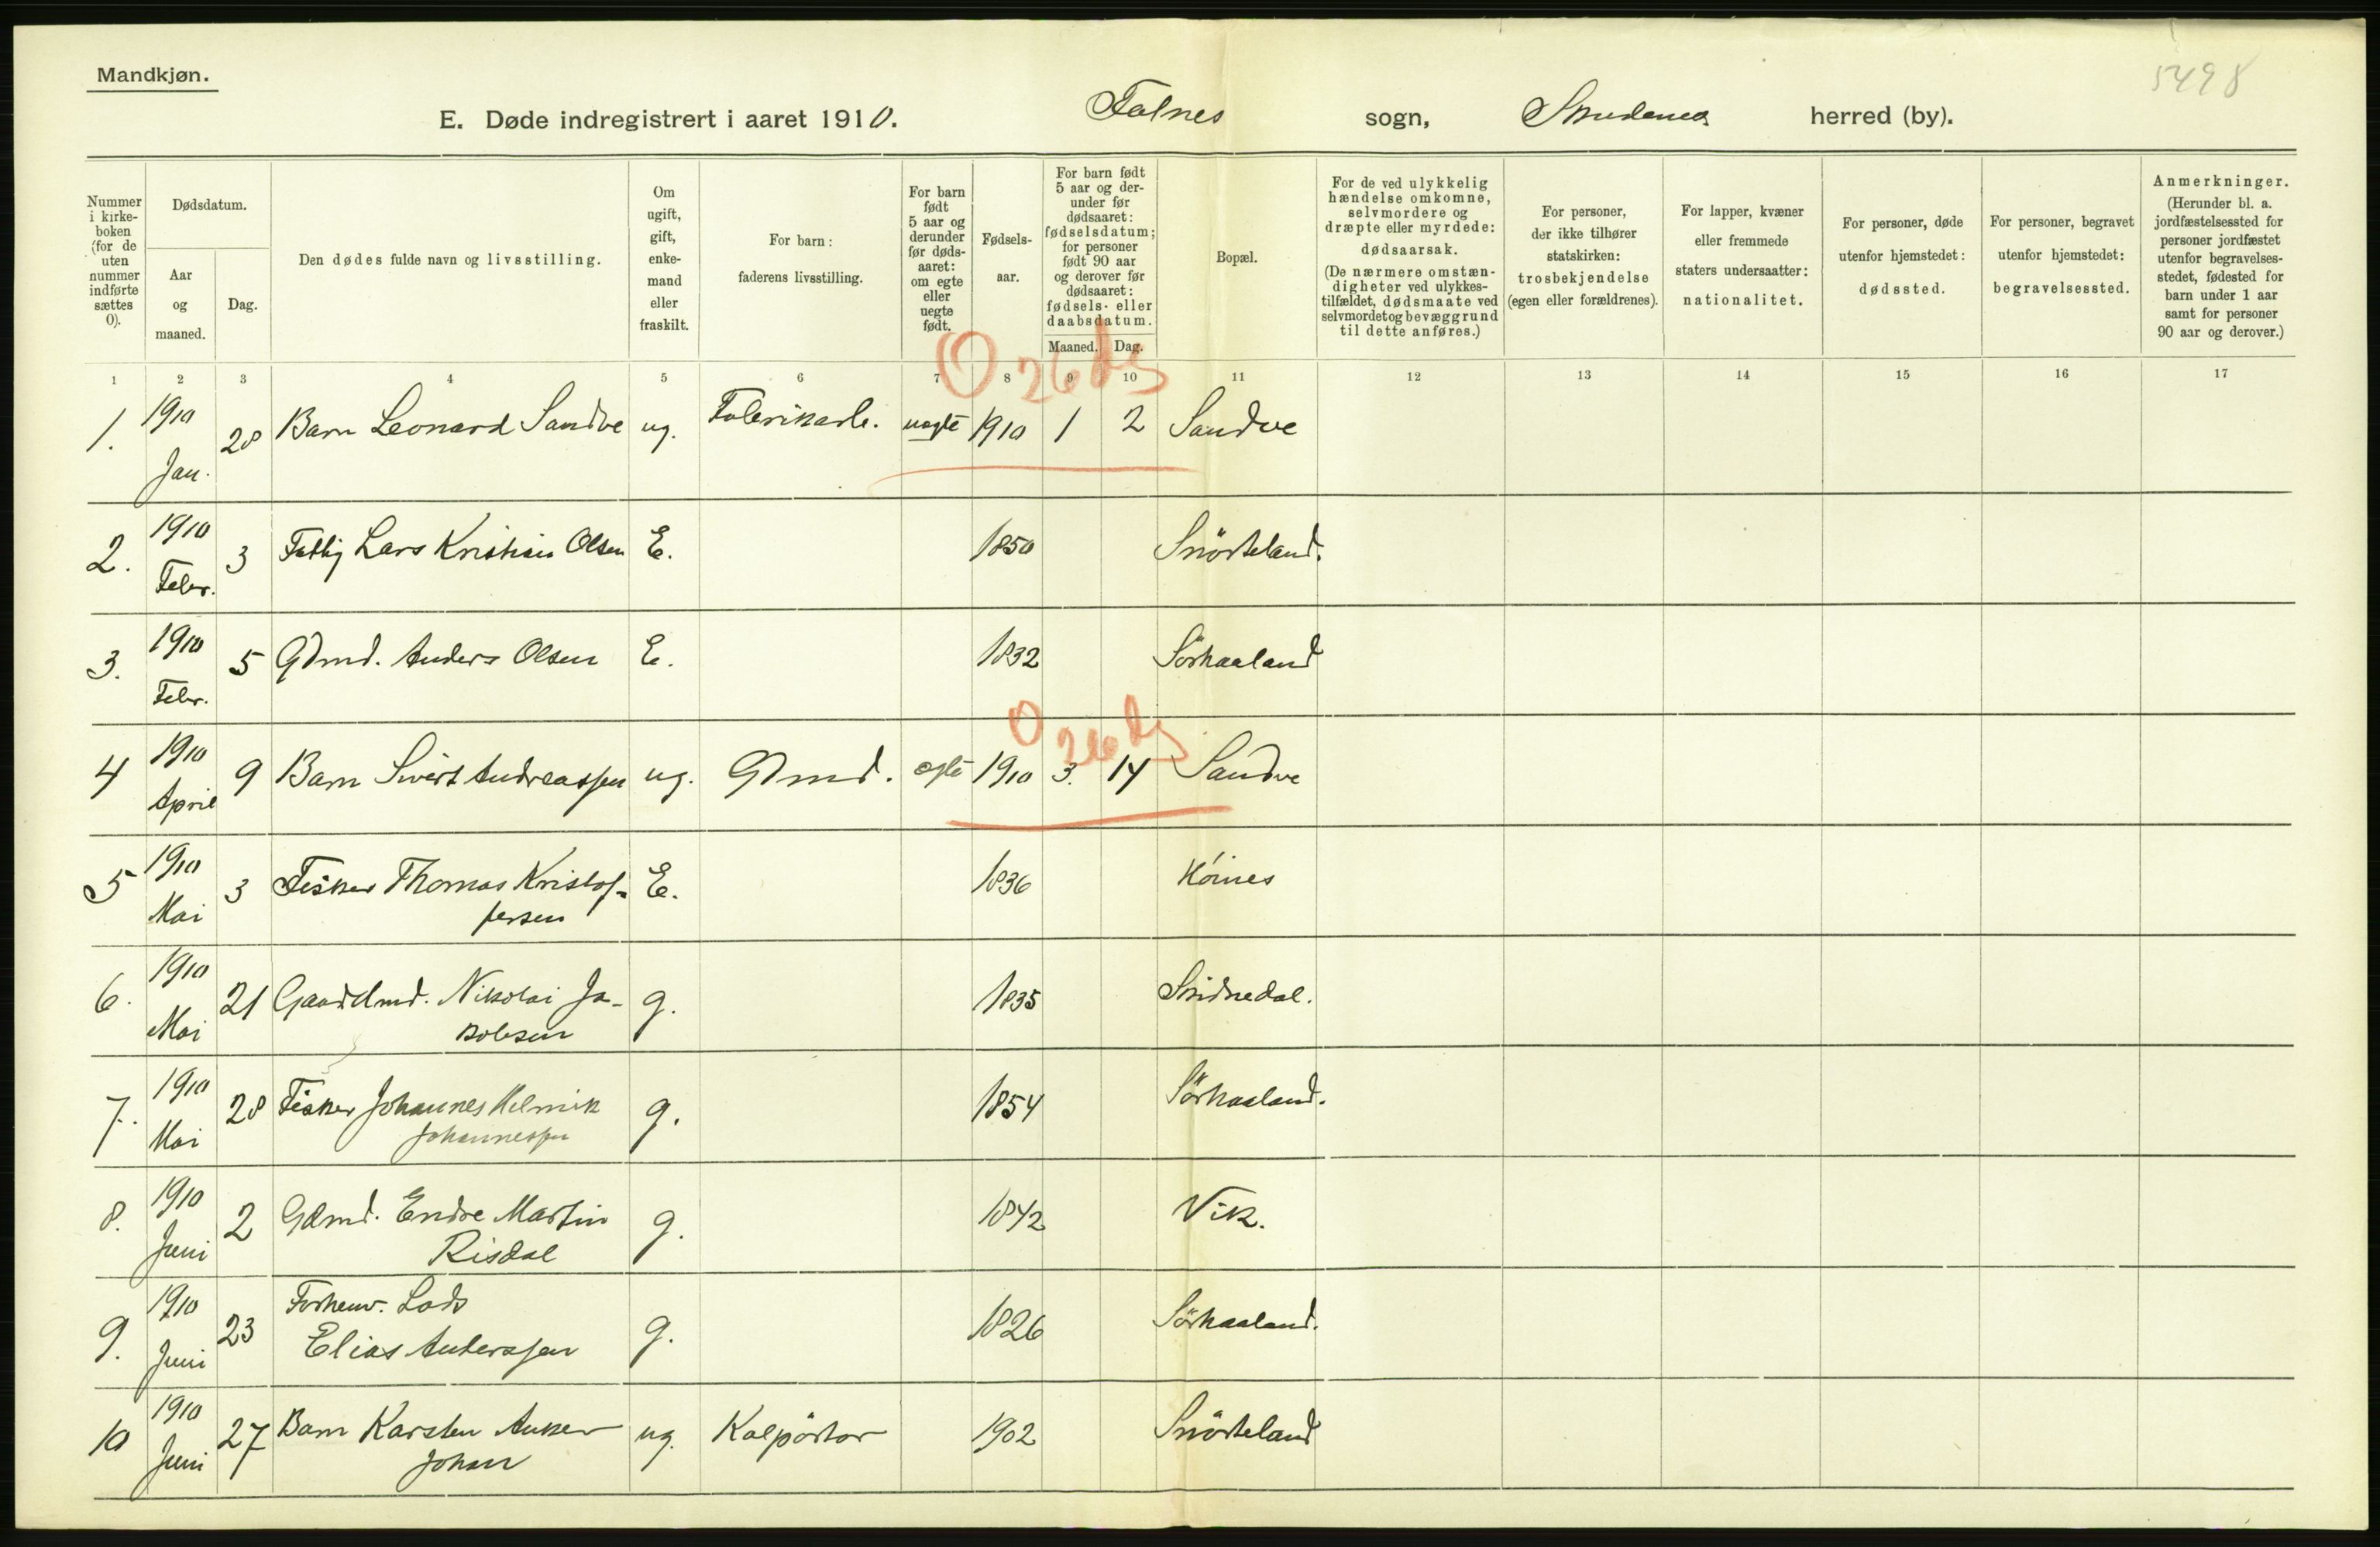 Mandkjøn.
5498
E. Døde indregistrert i aaret 1910. Falnes sogn, Skudenes herred (by).
Nummer i kirke-boken (for de uten nummer indførte sættes 0).
Dødsdatum.
Aar og maaned.
Dag.
Den dødes fulde navn og livsstilling.
Om ugift, gift, enke-mand eller fraskilt.
For barn: faderens livsstilling.
For barn født 5 aar og derunder før døds-aaret: om egte eller uegte født.
Fødsels-aar.
For barn født 5 aar og der-under før dødsaaret: fødselsdatum; for personer født 90 aar og derover før dødsaaret: fødsels- eller daabsdatum.
Maaned. Dag.
Bopæl.
For de ved ulykkelig hændelse omkomne, selvmordere og dræpte eller myrdede: dødsaarsak. (De nærmere omstæn-digheter ved ulykkes-tilfældet, dødsmaate ved selvmordet og bevæggrund til dette anføres.)
For personer, der ikke tilhører statskirken: trosbekjendelse (egen eller forældrenes).
For lapper, kvæner eller fremmede staters undersaatter: nationalitet.
For personer, døde utenfor hjemstedet: dødssted.
For personer, begravet utenfor hjemstedet: begravelsessted.
Anmerkninger. (Herunder bl. a. jordfæstelsessted for personer jordfæstet utenfor begravelses-stedet, fødested for barn under 1 aar samt for personer 90 aar og derover.)
1 2 3 4 5 6 7 8 9 10 11 12 13 14 15 16 17
0 26 dg
1. 1910 Jan. 28 Barn Leonard Sandve ug. Fabrikarb. uegte 1910 1 2 Sandve
2. 1910 Febr. 3 Fattig Lars Kristian Olsen E. 1850 Snörteland.
3. 1910 Febr. 5 Gdmd. Anders Olsen E. 1832 Sörhaaland
0 26 dg
4 1910 April 9 Barn Sivert Andreassen ug. Gdmd. egte 1910 3. 14 Sandve
5 1910 Mai 3 Fisker Thomas Kristof-
fersen E. 1836 Höines
6. 1910 Mai 21 Gaardmd. Nikolai Ja-
kobsen g. 1835
7. 1910 Mai 28 Fisker Johannes Helmik
Johannessen g. 1854 Sörhaaland.
8. 1910 Juni 2 Gdmd. Endre Martin
Risdal g. 1842 Vik.
9. 1910 Juni 23 Forhenv. Lods
Elias Anderssen g. 1826 Sörhaaland.
10 1910 Juni 27 Barn Karsten Anker
Johan ug. Kolpörtör 1902 Snörteland